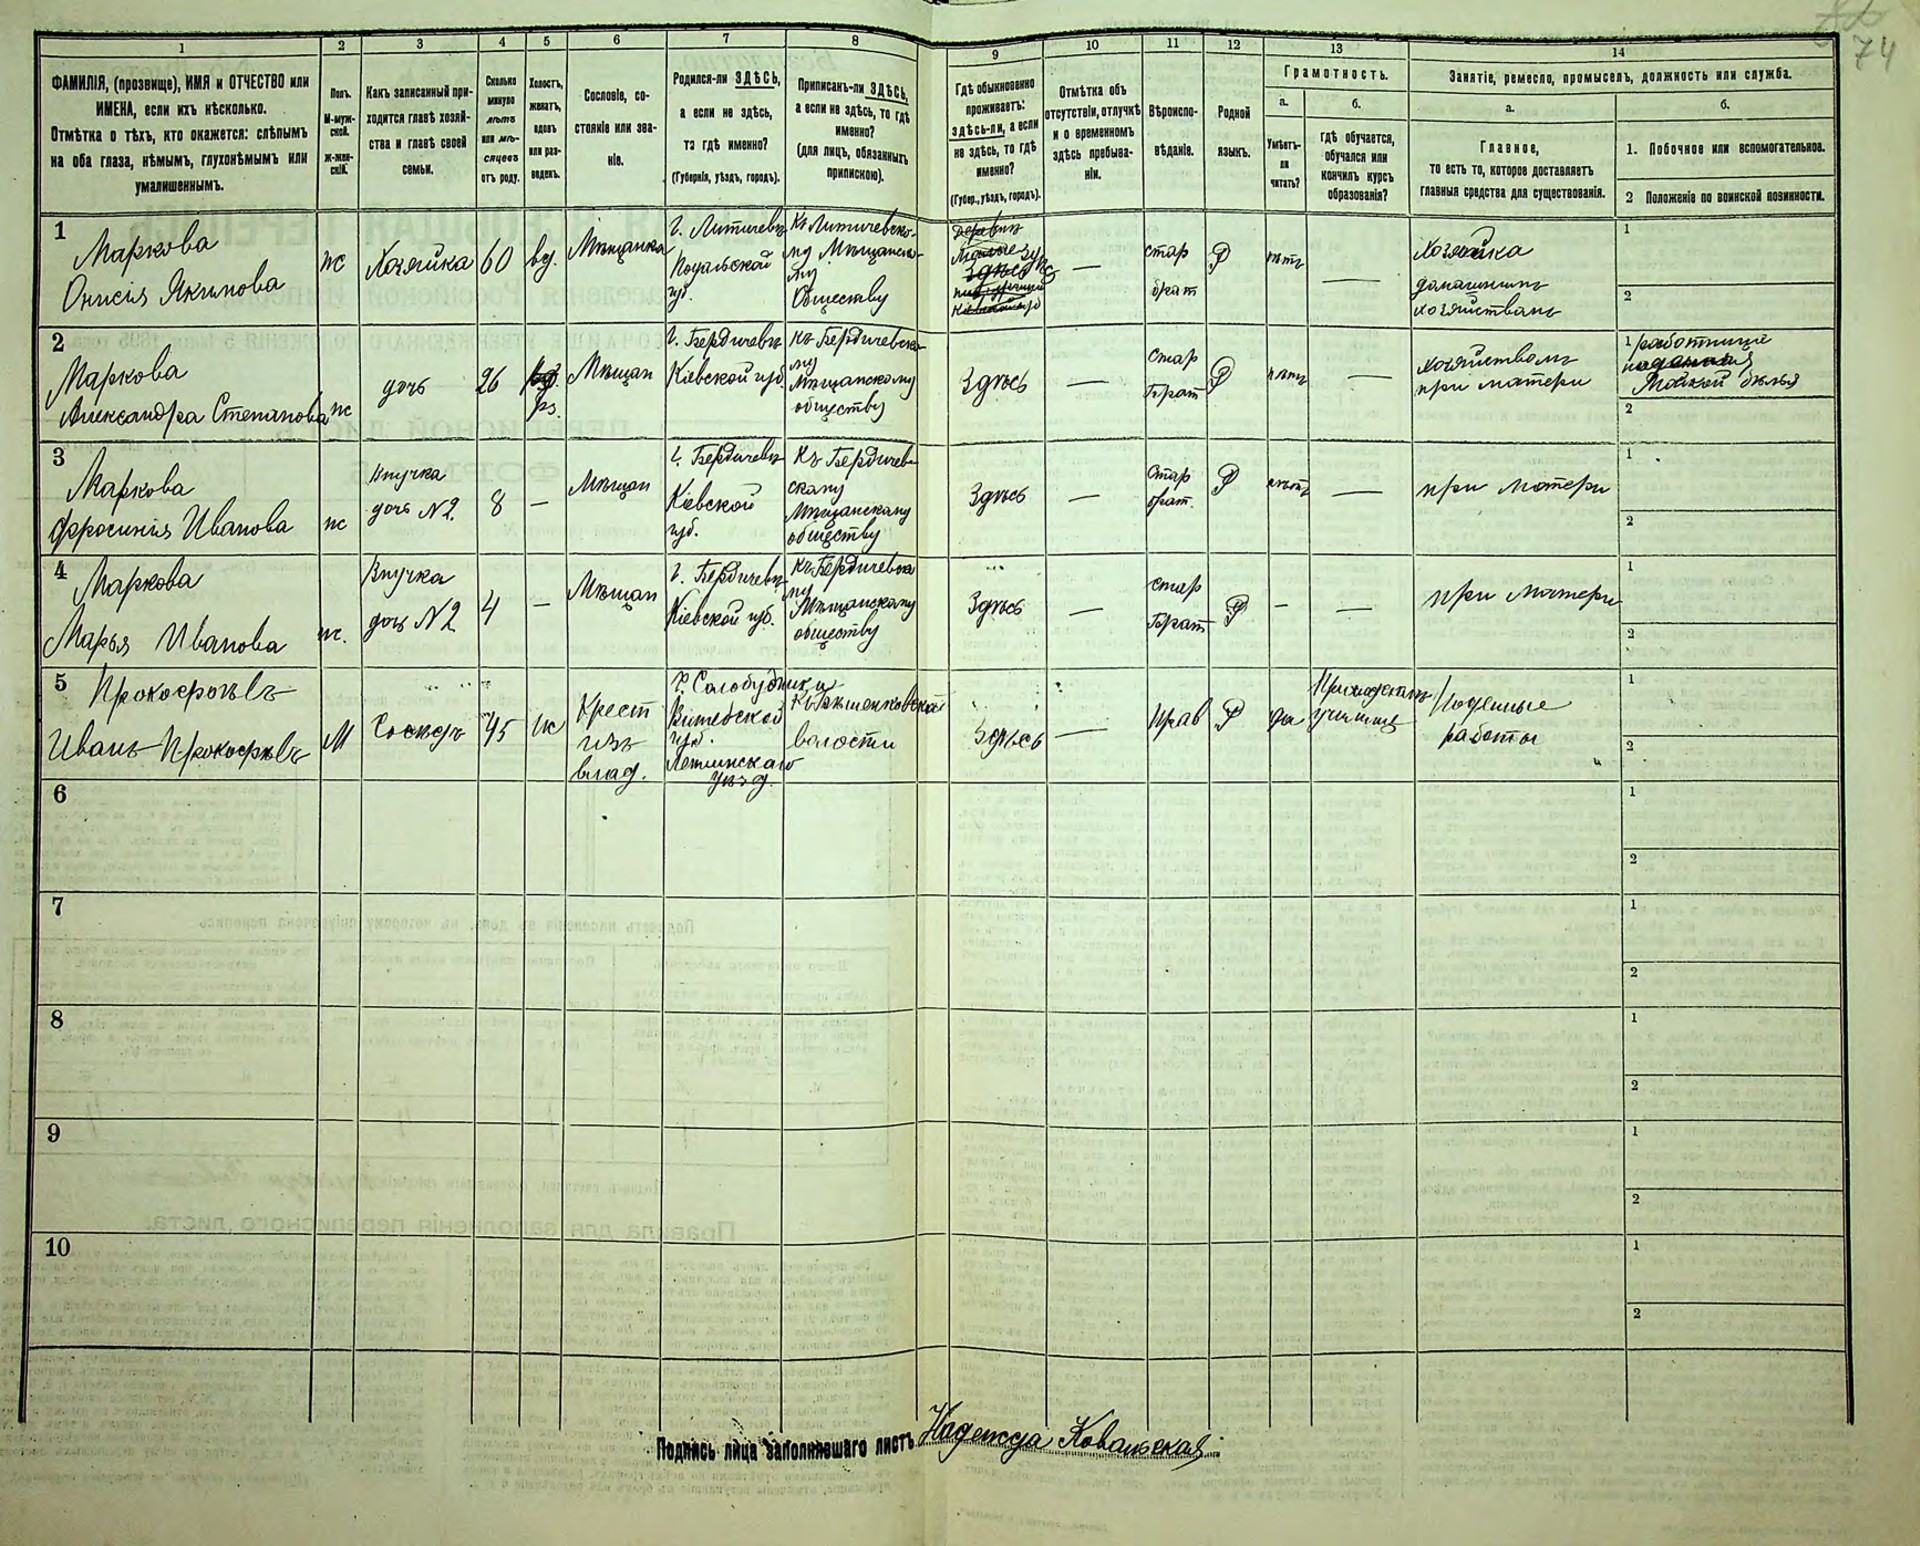 74
1
2
3
4
5
6
7
8
9
10
11
12
13
14
ФАМИЛІЯ, (прозвище), ИМЯ и ОТЧЕСТВО или
ИМЕНА, если ихъ нѣсколько.
Отмѣтка о тѣхъ, кто окажется: слѣпымъ
на оба глаза, нѣмымъ, глухонѣмымъ или
умалишеннымъ.
Полъ.
М-муж-
ской.
Ж-жен-
скій.
Какъ записанный при-
ходится главѣ хозяй-
ства и главѣ своей
семьи.
Сколько
минуло
лѣтъ
или мѣ-
сяцевъ
отъ роду.
Холостъ,
женатъ,
вдовъ
или раз-
веденъ.
Сословіе, со-
стояніе или зва-
ніе.
Родился-ли ЗДѢСЬ,
а если не здѣсь,
то гдѣ именно?
(Губернія, уѣздъ, городъ).
Приписанъ-ли ЗДѢСЬ,
а если не здѣсь, то гдѣ
именно?
(для лицъ, обязанныхъ
припискою).
Гдѣ обыкновенно
проживаетъ:
здѣсь-ли, а если
не здѣсь, то гдѣ
именно?
(Губер., уѣздъ, городъ).
Отмѣтка объ
отсутствіи, отлучкѣ
и о временномъ
здѣсь пребыва-
ніи.
Вѣроиспо-
вѣданіе.
Родной
языкъ.
Грамотность.
а.
Умѣетъ-
ли
читать?
б.
Гдѣ обучается,
обучался или
кончилъ курсъ
образованія?
Занятіе, ремесло, промыселъ, должность или служба.
а.
Главное,
то есть то, которое доставляетъ
главныя средства для существованія.
б.
1. Побочное или вспомогательное.
2 Положеніе по воинской повинности.
1
Маркова
Онисія Якимова
ж
Хозяйка
60
вд.
Мѣщанка
г. Литичевъ
Подольской
губ.
Къ Литичевско-
му Мѣщанско-
му
Обществу
Здѣсь
—
стар
брат
Р
нѣтъ
—
Хозяйка
домашнимъ
хозяйствомъ
1
2
2
Маркова
Александра Степанова
ж
дочь
26
рз.
Мѣщан
г. Бердичевъ
Кіевской губ.
къ Бердичевско
му
Мѣщанскому
обществу
Здѣсь
—
стар
брат
Р
нѣтъ
—
хозяйствомъ
при матери
1 работницей
поденная
Мойкой бѣлья
2
3
Маркова
Фросинія Иванова
ж
Внучка
дочь №2.
8
—
Мѣщан
г. Бердичевъ
Кіевской
губ.
Къ Бердичев
скому
Мѣщанскому
обществу
Здѣсь
—
стар
брат.
Р
нѣтъ
—
при матери
1
2
4
Маркова
Марья Иванова
ж.
Внучка
дочь №2
4
—
Мѣщан
г. Бердичевъ
Кіевской губ.
Къ Бердичевско
му
Мѣщанскому
обществу
Здѣсь
—
стар
брат
Р
—
—
при матери
1
2
5
Прокофьевъ
Иванъ Прокофьевъ
М
Сосѣдъ
45
ж
Крест
изъ
влад.
Витебской
губ.
уѣзд.
волости
Здѣсь
—
прав
Р
да
училище
Поденные
работы
1
2
6
1
2
7
1
2
8
1
2
9
1
2
10
1
2
Подпись лица заполнившаго листъ Надежда Ковальская